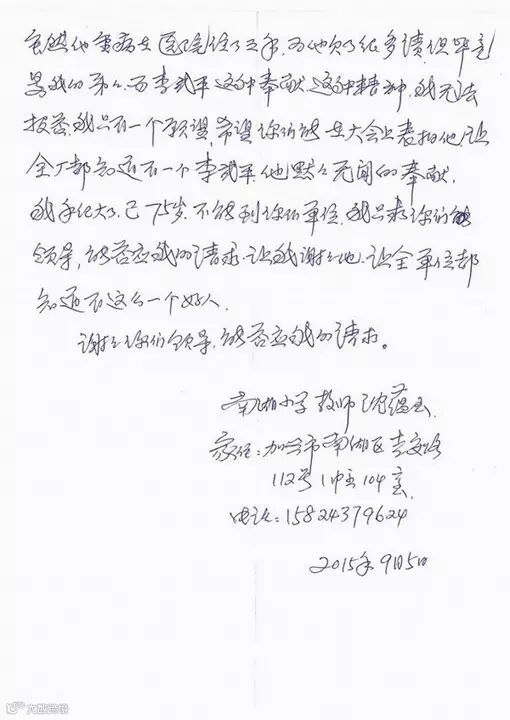 虽然他重病在医院住了三年，为他欠了很多债，但毕竟
是我的弟弟。而李武平这种奉献，这种精神，我无法
报答。我只有一个愿望，希望你们能在大会上表扬他，让
全厂都知道有一个李武平，他默默无闻的奉献。
我年纪大了，已75岁，不能到你们单位，我只求你们的
领导，能答应我的请求，让我谢谢他，让全单位都
知道有这么一个好人。
谢谢你们领导，能答应我的请求。
南湖小学教师沈蕴玉
家住：加兴市南湖区吉交路
112号1幢104室
电话：15824379624
2015年9月5日